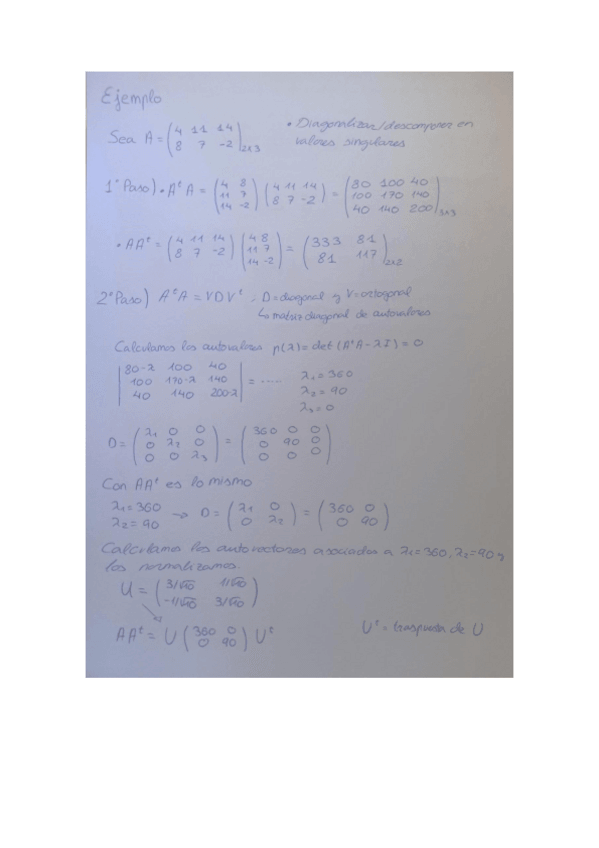 Ejemplo
Sea A = (4 11 14 / 8 7 -2)2x3
• Diagonalizar/descomponer en
valores singulares
1º Paso) • AᵗA = (4 8 / 11 7 / 14 -2) (4 11 14 / 8 7 -2) = (80 100 40 / 100 170 140 / 40 140 200)3x3
• AAᵗ = (4 11 14 / 8 7 -2) (4 8 / 11 7 / 14 -2) = (333 81 / 81 117)2x2
2º Paso) AᵗA = VDVᵗ ; D = diagonal y V = ortogonal
↳ matriz diagonal de autovalores
Calculamos los autovalores p(λ) = det (AᵗA - λI) = 0
|80-λ 100 40 / 100 170-λ 140 / 40 140 200-λ| = ..... λ₁ = 360 / λ₂ = 90 / λ₃ = 0
D = (λ₁ 0 0 / 0 λ₂ 0 / 0 0 λ₃) = (360 0 0 / 0 90 0 / 0 0 0)
Con AAᵗ es lo mismo
λ₁ = 360 / λ₂ = 90 → D = (λ₁ 0 / 0 λ₂) = (360 0 / 0 90)
Calculamos los autovectores asociados a λ₁ = 360, λ₂ = 90 y
los normalizamos.
U = (3/√10 1/√10 / -1/√10 3/√10)
AAᵗ = U (360 0 / 0 90) Uᵗ
Uᵗ = traspuesta de U